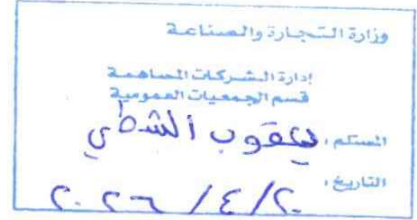 وزارة التجارة والصناعة
إدارة الشركات المساهمة
قسم الجمعيات العمومية
المستلم، يعقوب الشطي
التاريخ، ٢٠٢٦/٤/٢٠